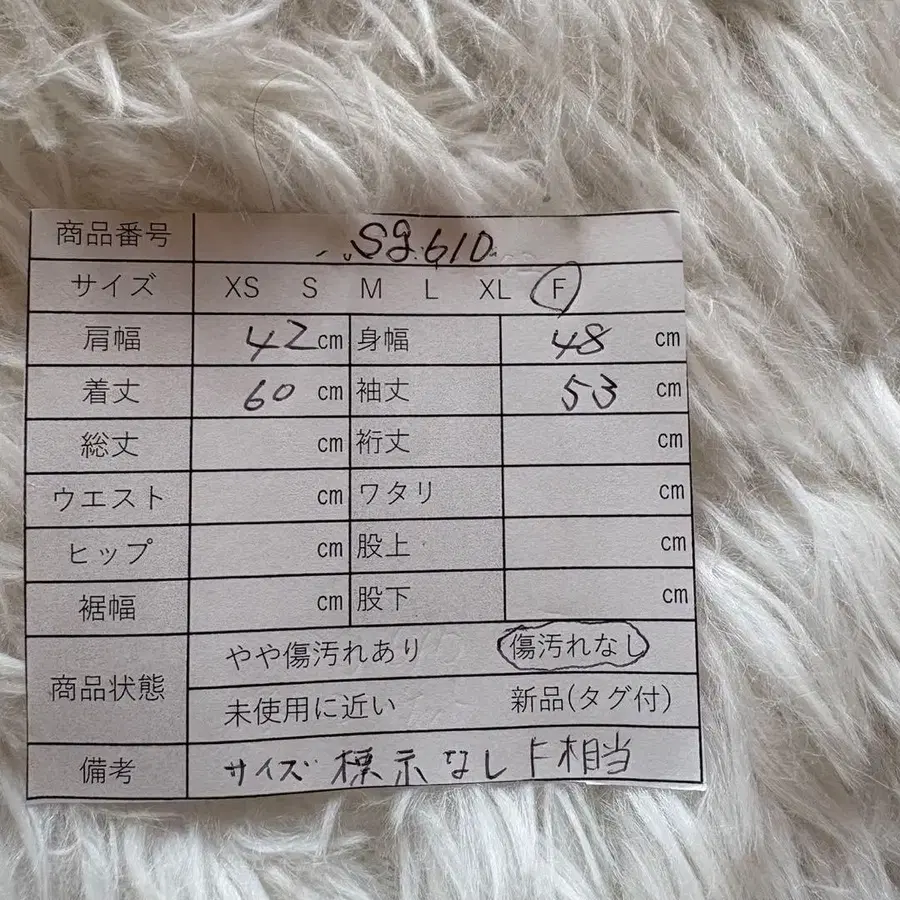 商品番号 Sg610
サイズ XS S M L XL F
肩幅 42cm 身幅 48 cm
着丈 60 cm 袖丈 53 cm
総丈 cm 裄丈 cm
ウエスト cm ワタリ cm
ヒップ cm 股上 cm
裾幅 cm 股下 cm
商品状態 やや傷汚れあり 傷汚れなし
未使用に近い 新品(タグ付)
備考 サイズ標示なし F相当